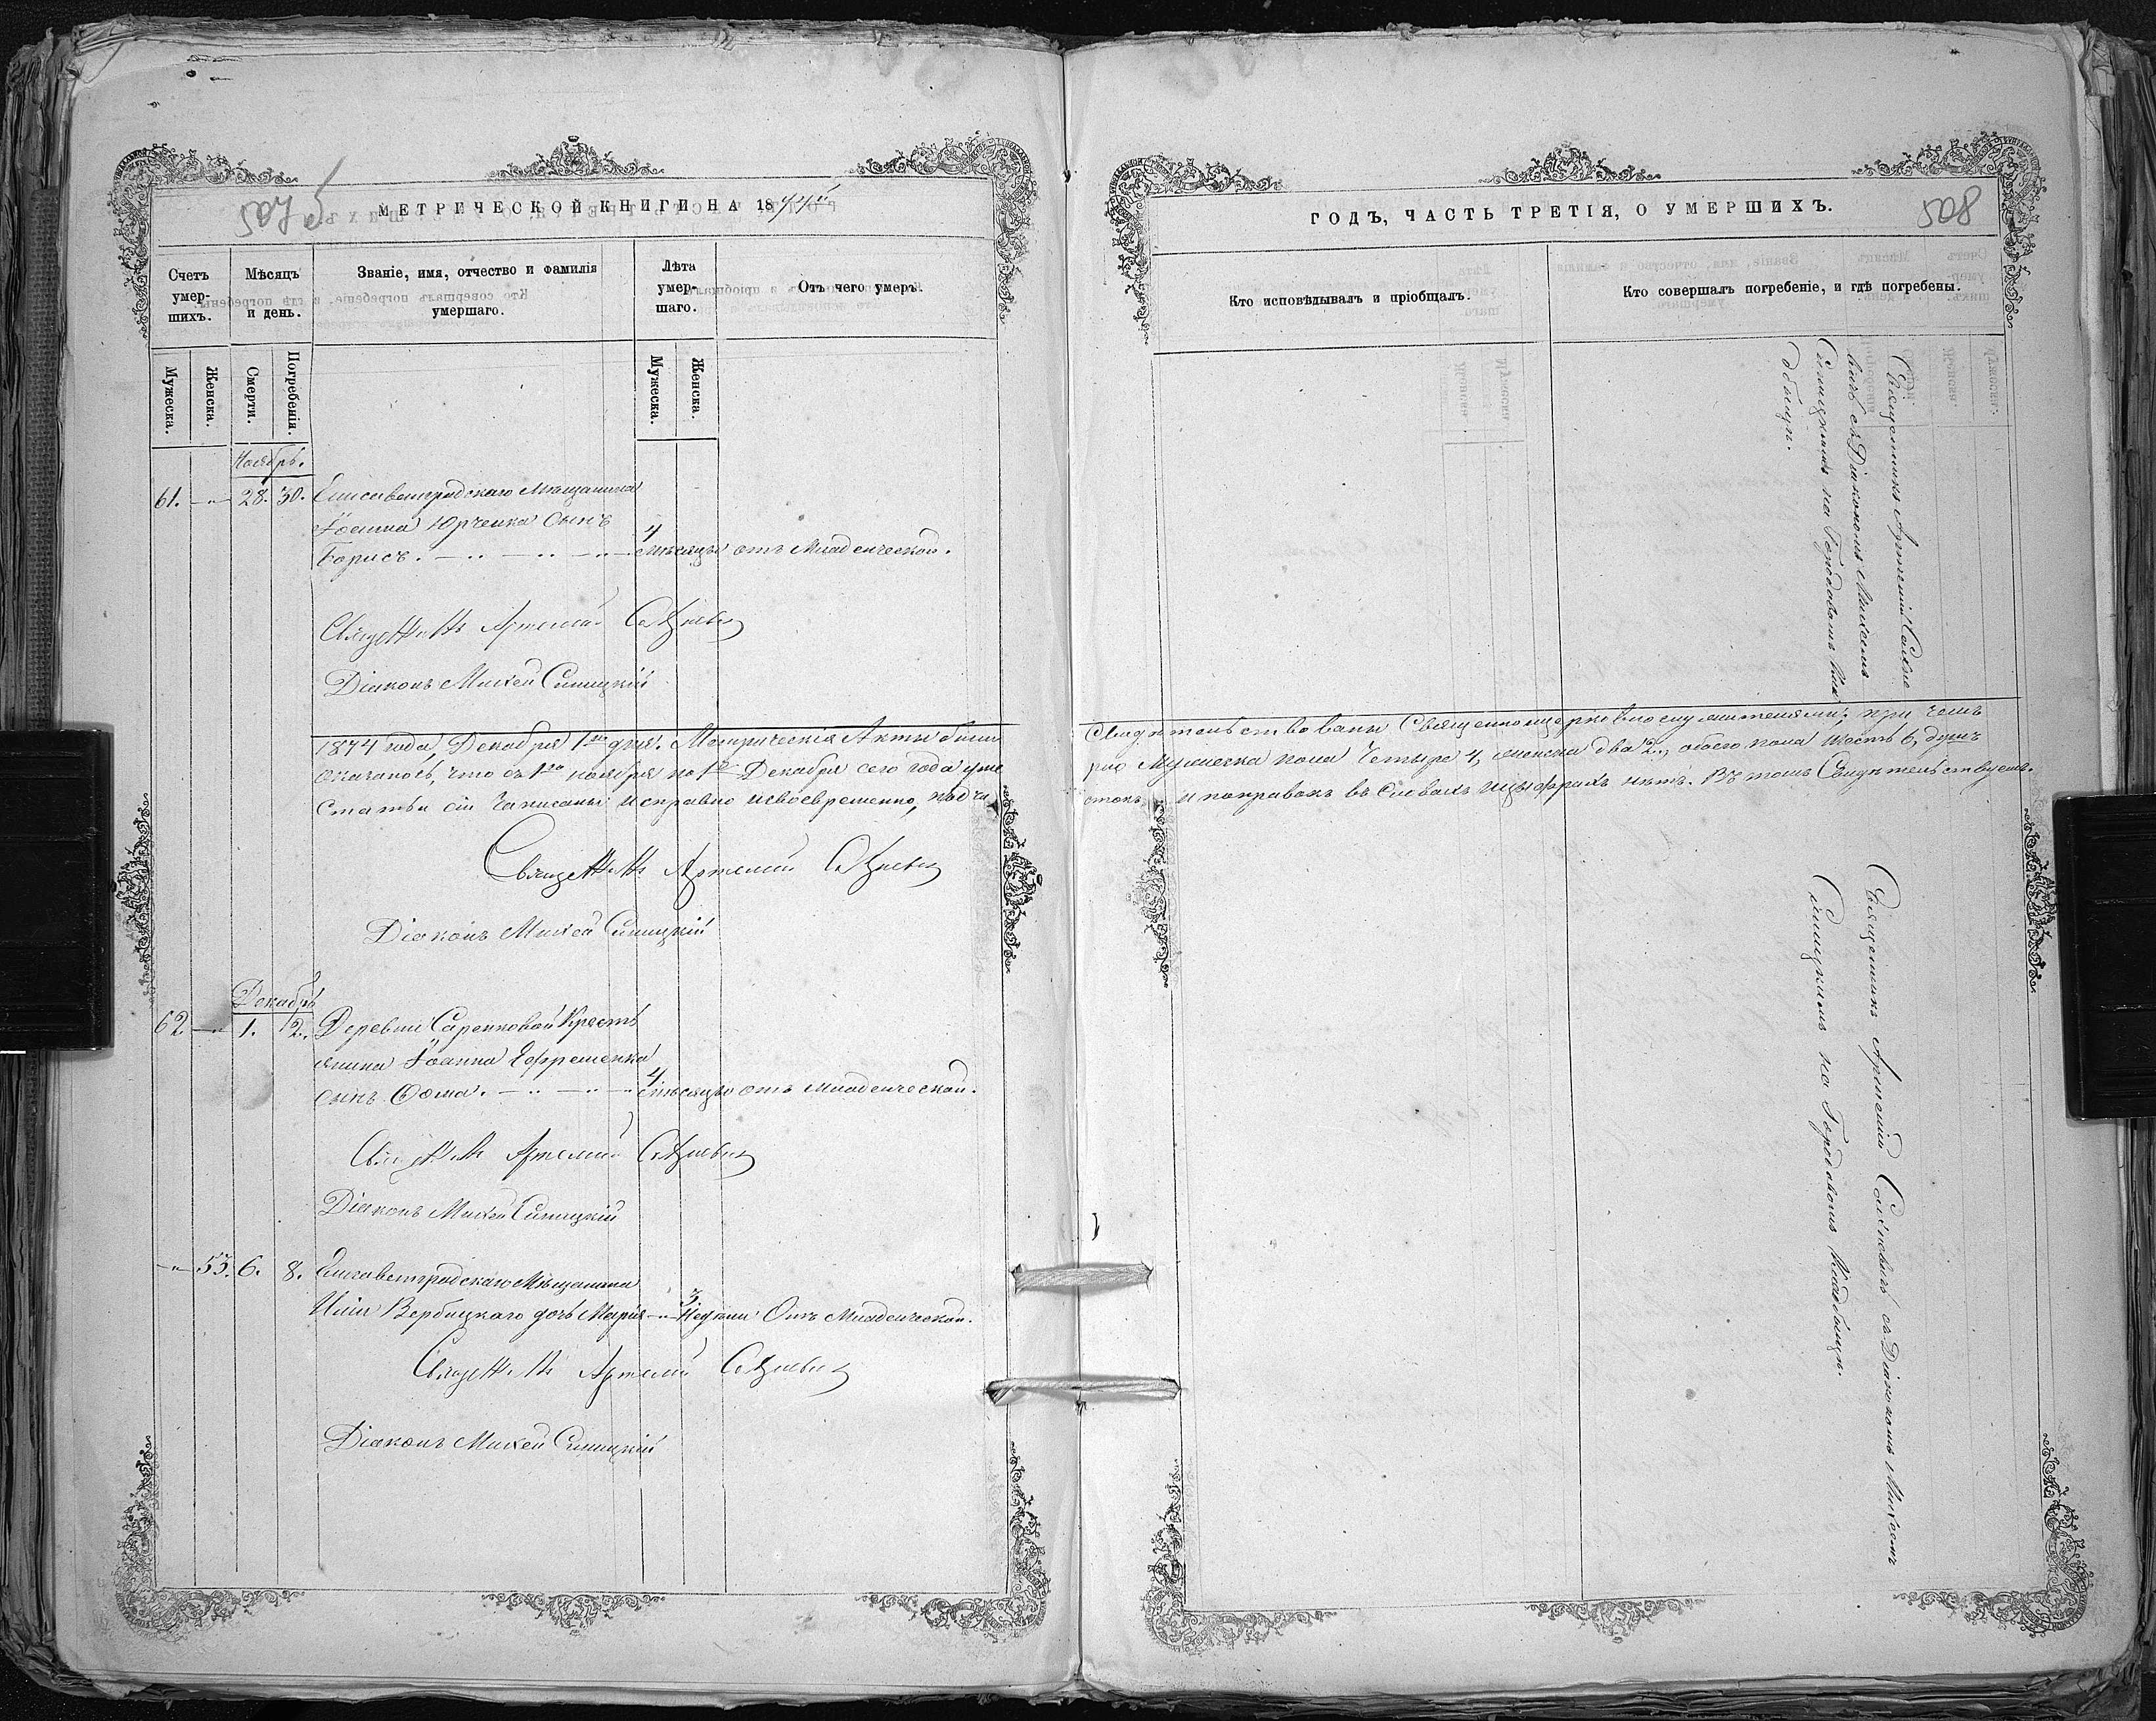 507 б
МЕТРИЧЕСКОЙ КНИГИ НА 1874й
Счетъ умер-шихъ.
Мѣсяцъ и день.
Званіе, имя, отчество и фамилія умершаго.
Лѣта умер-шаго.
Отъ чего умеръ.
Мужеска.
Женска.
Смерти.
Погребенія.
Мужеска.
Женска.
Ноябрь.
61. —"— 28. 30. Елисаветградскаго Мѣщанина
Іоанна Юрченка Сынъ
Борисъ. 4 мѣсяцы отъ Младенческой.
Священникъ Артемій
Діаконъ Михей Синицкій
1874 года, Декабря 1го дня. Метрическіе Акты были
оказалось, что съ 1го ноября по 1е Декабря сего года уме
Статьи сіи записаны исправно и своевременно, подчи
Священникъ Артемій
Діаконъ Михей Синицкій
Декабрь
62 —"— 1. 2. Деревни Крестъ
янина Іоанна Ефременка
сынъ Ѳома. 4 мѣсяцы отъ младенческой.
Священникъ Артемій
Діаконъ Михей Синицкій
—"— 53. 6. 8. Елисаветградскаго Мѣщанина
Иліи Вербицкаго дочь Марія —"— 3 Недѣли Отъ Младенческой.
Священникъ Артемій
Діаконъ Михей Синицкій
ГОДЪ, ЧАСТЬ ТРЕТІЯ, О УМЕРШИХЪ.
508
Кто исповѣдывалъ и пріобщалъ.
Кто совершалъ погребеніе, и гдѣ погребены.
Священникъ Артемій
вичъ съ Діакономъ Михеемъ
Синицкимъ на Городовомъ Кла
дбищѣ.
Свидѣтельствованы Священноцерковнослужителями; при чемъ
рло Мужеска пола Четыре 4, женска два 2., обоего пола Шесть 6, душъ
стокъ и поправокъ въ Словахъ и цыфрахъ нѣтъ. Въ томъ Свидѣтельствуемъ.
Священникъ Артемій съ Діакономъ Михеемъ
Синицкимъ на Городскомъ Кладбищѣ.